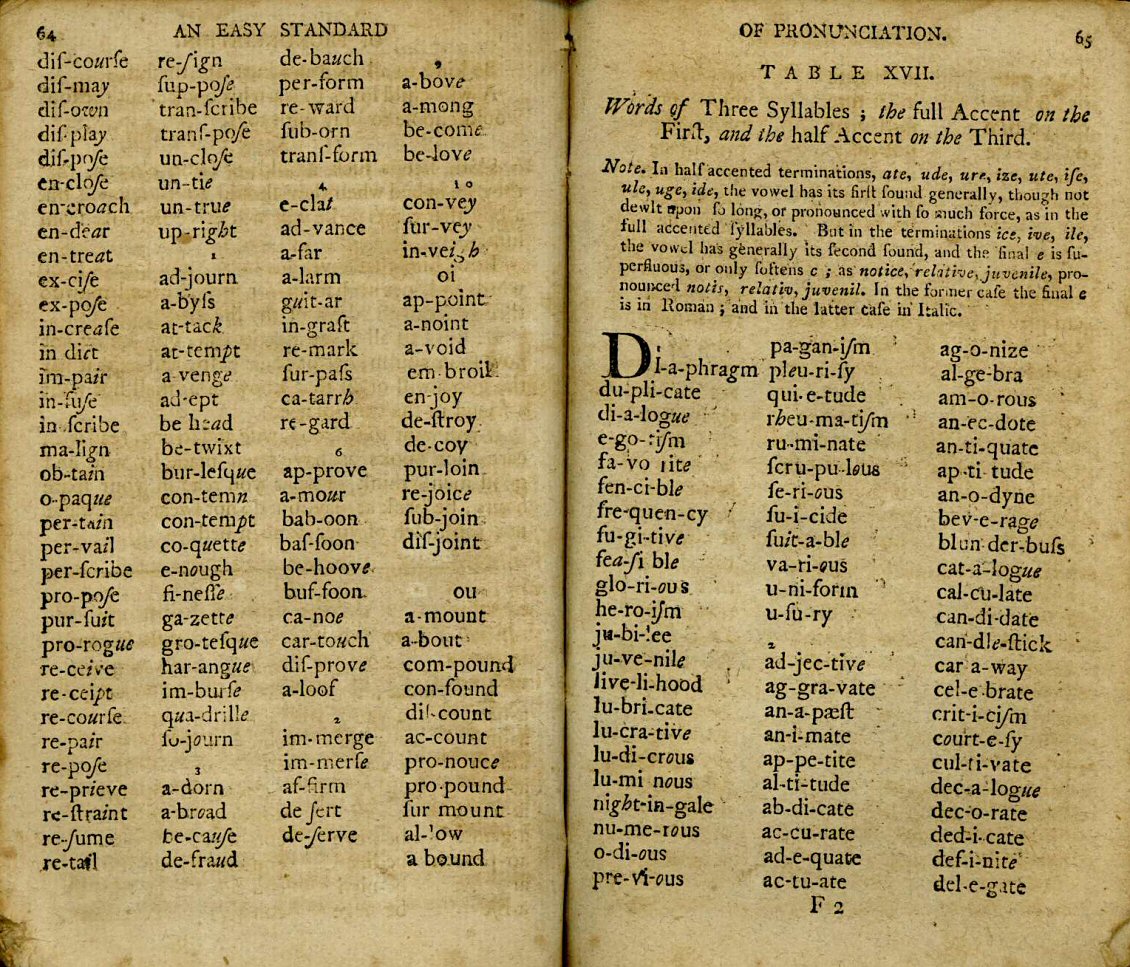 64 AN EASY STANDARD
diſ-courſe
diſ-may
diſ-own
diſ-play
diſ-poſe
en-cloſe
en-croach
en-dear
en-treat
ex-ciſe
ex-poſe
in-creaſe
in dict
im-pair
in-fuſe
in ſcribe
ma-lign
ob-tain
o-paque
per-tain
per-vail
per-ſcribe
pro-poſe
pur-ſuit
pro-rogue
re-ceive
re-ceipt
re-courſe
re-pair
re-poſe
re-prieve
re-ſtraint
re-ſume
re-tail
re-ſign
ſup-poſe
tran-ſcribe
tranſ-poſe
un-cloſe
un-tie
un-true
up-right
1
ad-journ
a-byſs
at-tack
at-tempt
a-venge
ad-ept
be head
be-twixt
bur-leſque
con-temn
con-tempt
co-quette
e-nough
fi-neſſe
ga-zette
gro-teſque
har-angue
im-burſe
qua-drille
ſo-journ
3
a-dorn
a-broad
be-cauſe
de-fraud
de-bauch
per-form
re-ward
ſub-orn
tranſ-form
4
e-clat
ad-vance
a-far
a-larm
guit-ar
in-graft
re-mark
ſur-paſs
ca-tarrh
re-gard
6
ap-prove
a-mour
bab-oon
baſ-ſoon
be-hoove
buf-foon
ca-noe
car-touch
diſ-prove
a-loof
2
im-merge
im-merſe
af-firm
de ſert
de-ſerve
9
a-bove
a-mong
be-come
be-love
10
con-vey
ſur-vey
in-veigh
oi
ap-point
a-noint
a-void
em broil
en-joy
de-ſtroy
de-coy
pur-loin
re-joice
ſub-join
diſ-joint
ou
a-mount
a-bout
com-pound
con-found
diſ-count
ac-count
pro-nouce
pro pound
ſur mount
al-low
a bound
OF PRONUNCIATION. 65
TABLE XVII.
Words of Three Syllables ; the full Accent on the
Firſt, and the half Accent on the Third.
Note. In half accented terminations, ate, ude, ure, ize, ute, iſe,
ule, uge, ide, the vowel has its firſt found generally, though not
dewlt upon ſo long, or pronounced with ſo much force, as in the
full accented ſyllables. But in the terminations ice, ive, ile,
the vowel has generally its ſecond found, and the final e is ſu-
perfluous, or only ſoftens c ; as notice, relative, juvenile, pro-
nounced notis, relativ, juvenil. In the former caſe the final e
is in Roman ; and in the latter caſe in Italic.
1
DI-a-phragm
du-pli-cate
di-a-logue
e-go-tiſm
fa-vo rite
fen-ci-ble
fre-quen-cy
fu-gi-tive
fea-ſi ble
glo-ri-ous
he-ro-iſm
ju-bi-lee
ju-ve-nile
live-li-hood
lu-bri-cate
lu-cra-tive
lu-di-crous
lu-mi nous
night-in-gale
nu-me-rous
o-di-ous
pre-vi-ous
pa-gan-iſm
pleu-ri-ſy
qui-e-tude
rheu-ma-tiſm
ru-mi-nate
ſcru-pu-lous
ſe-ri-ous
ſu-i-cide
ſuit-a-ble
va-ri-ous
u-ni-form
u-ſu-ry
2
ad-jec-tive
ag-gra-vate
an-a-pæſt
an-i-mate
ap-pe-tite
al-ti-tude
ab-di-cate
ac-cu-rate
ad-e-quate
ac-tu-ate
ag-o-nize
al-ge-bra
am-o-rous
an-ec-dote
an-ti-quate
ap-ti tude
an-o-dyne
bev-e-rage
blun der-buſs
cat-a-logue
cal-cu-late
can-di-date
can-dle-ſtick
car a-way
cel-e brate
crit-i-ciſm
court-e-ſy
cul-ti-vate
dec-a-logue
dec-o-rate
ded-i-cate
def-i-nite
del-e-gate
F 2